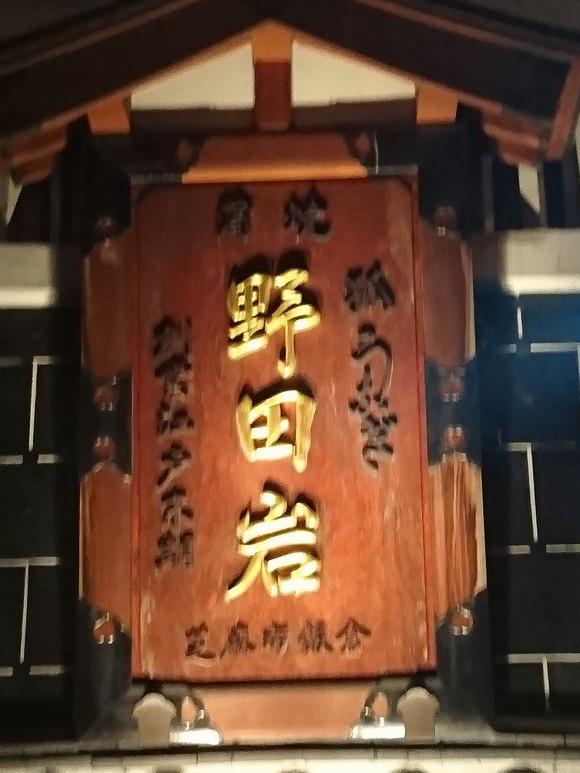 蒲焼
野田岩
創業江戸末期
芝麻布飯倉